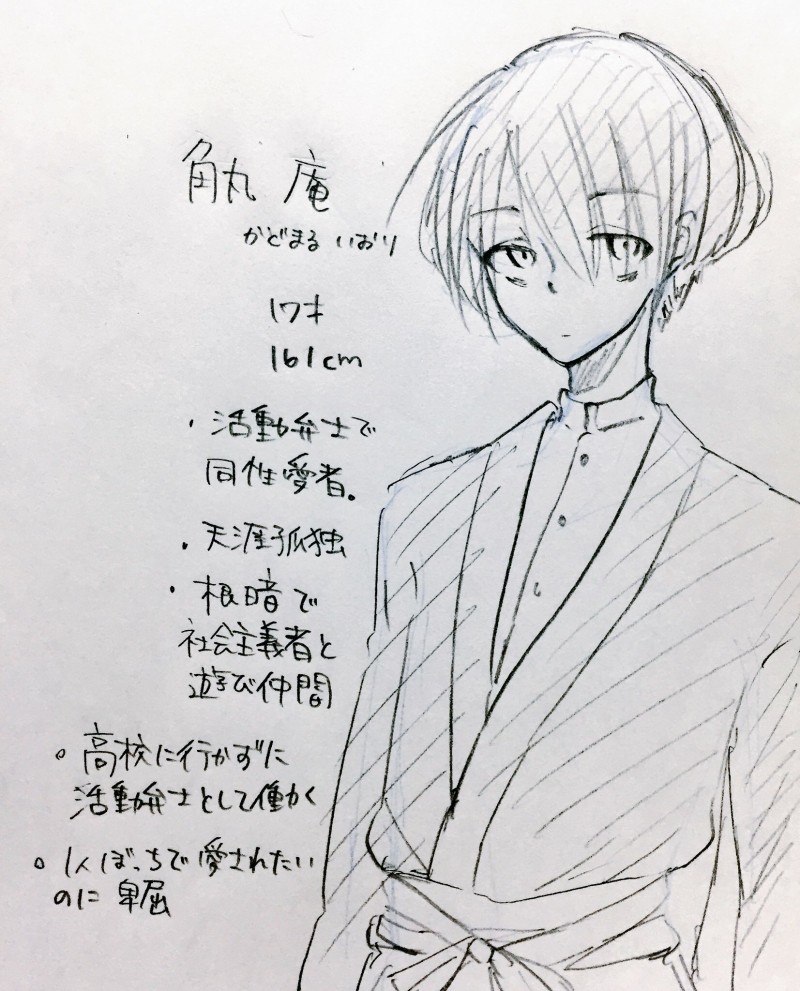 角丸 庵
かどまる いおり
17才
161cm
・活動弁士で
同性愛者。
・天涯孤独
・根暗で
社会主義者と
遊び仲間
○高校に行かずに
活動弁士として働く
○1人ぼっちで愛されたい
のに卑屈